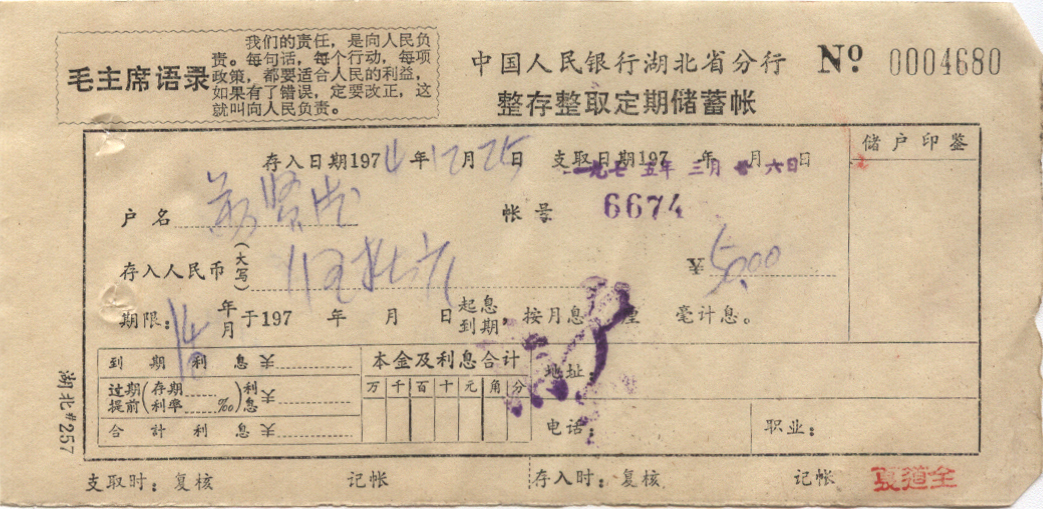 毛主席语录
我们的责任，是向人民负
责。每句话，每个行动，每项
政策，都要适合人民的利益，
如果有了错误，定要改正，这
就叫向人民负责。
中国人民银行湖北省分行 № 0004680
整存整取定期储蓄帐
存入日期1974年12月25日 支取日期197 年 月 日 储户印鉴
一九七五年三月 六日
户名 帐号 6674
存入人民币（大写） ¥ 5.00
期限： 年 月于197 年 月 日起息到期，按月息 厘 毫计息。
到期利息¥ 本金及利息合计 地址：
过期提前（存期利率 ‰）利息¥ 万千百十元角分
合计利息¥ 电话： 职业：
支取时：复核 记帐 存入时：复核 记帐 夏道全
湖北#257